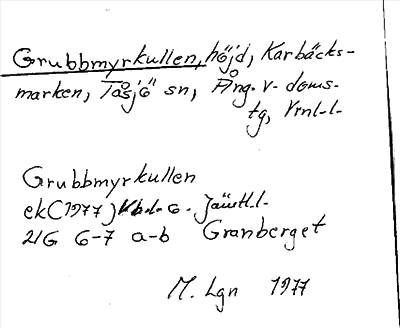 Grubbmyrkullen, höjd, Karbäcks-
marken, Tåsjö sn, Ång. v. doms-
tg, Vrnl-l-
Grubbmyrkullen
ekC 1977 Jämtl.l.
21G 6-7 a-b Granberget
M. Lgn 1977